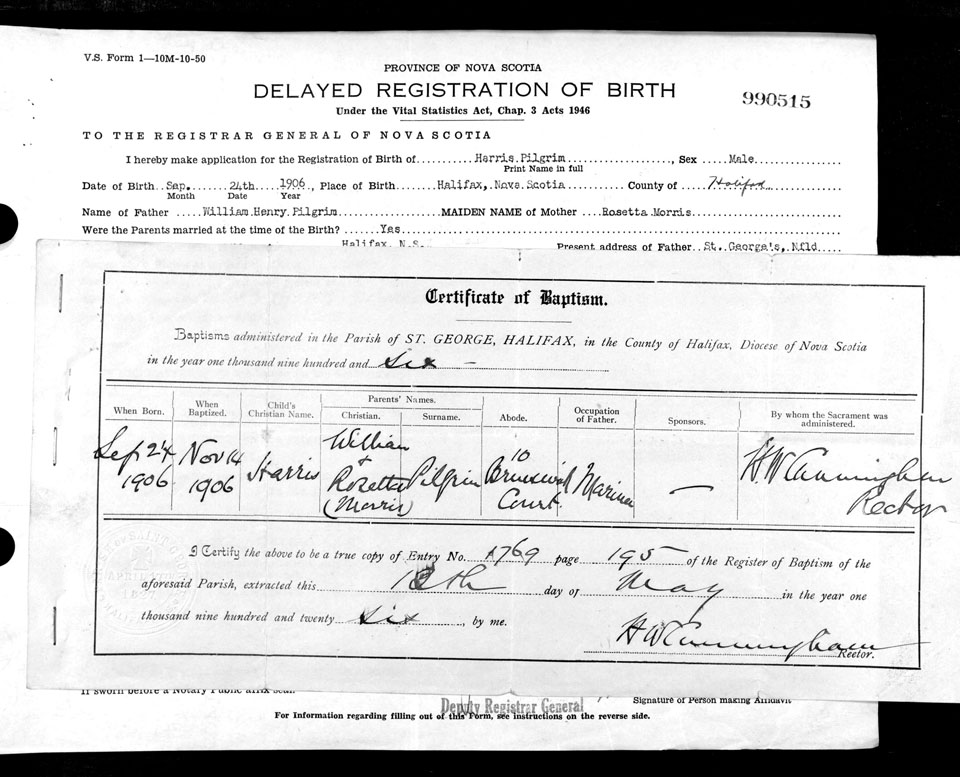 V.S. Form 1—10M-10-50
PROVINCE OF NOVA SCOTIA
DELAYED REGISTRATION OF BIRTH
990515
Under the Vital Statistics Act, Chap. 3 Acts 1946
TO THE REGISTRAR GENERAL OF NOVA SCOTIA
I hereby make application for the Registration of Birth of Harris Pilgrim, Sex Male
Print Name in full
Date of Birth Sep. 24th 1906, Place of Birth Halifax, Nova Scotia County of Halifax
Month Date Year
Name of Father William Henry Pilgrim MAIDEN NAME of Mother Rosetta Morris
Were the Parents married at the time of the Birth? Yes
Halifax, N.S. Present address of Father St. George's, Nfld
Certificate of Baptism.
Baptisms administered in the Parish of ST. GEORGE, HALIFAX, in the County of Halifax, Diocese of Nova Scotia
in the year one thousand nine hundred and Six —
When Born. When Baptized. Child's Christian Name. Parents' Names. Christian. Surname. Abode. Occupation of Father. Sponsors. By whom the Sacrament was administered.
Sep 24 1906 Nov 14 1906 Harris William + Rosetta (Morris) Pilgrim 10 Brunswick Court. Mariner — H W Cunningham Rector
I Certify the above to be a true copy of Entry No. 1769 page 195 of the Register of Baptism of the
aforesaid Parish, extracted this day of May in the year one
thousand nine hundred and twenty six, by me.
H W Cunningham
Rector.
If sworn before a Notary Public affix seal.
Signature of Person making Affidavit
Deputy Registrar General
For Information regarding filling out of this Form, see instructions on the reverse side.